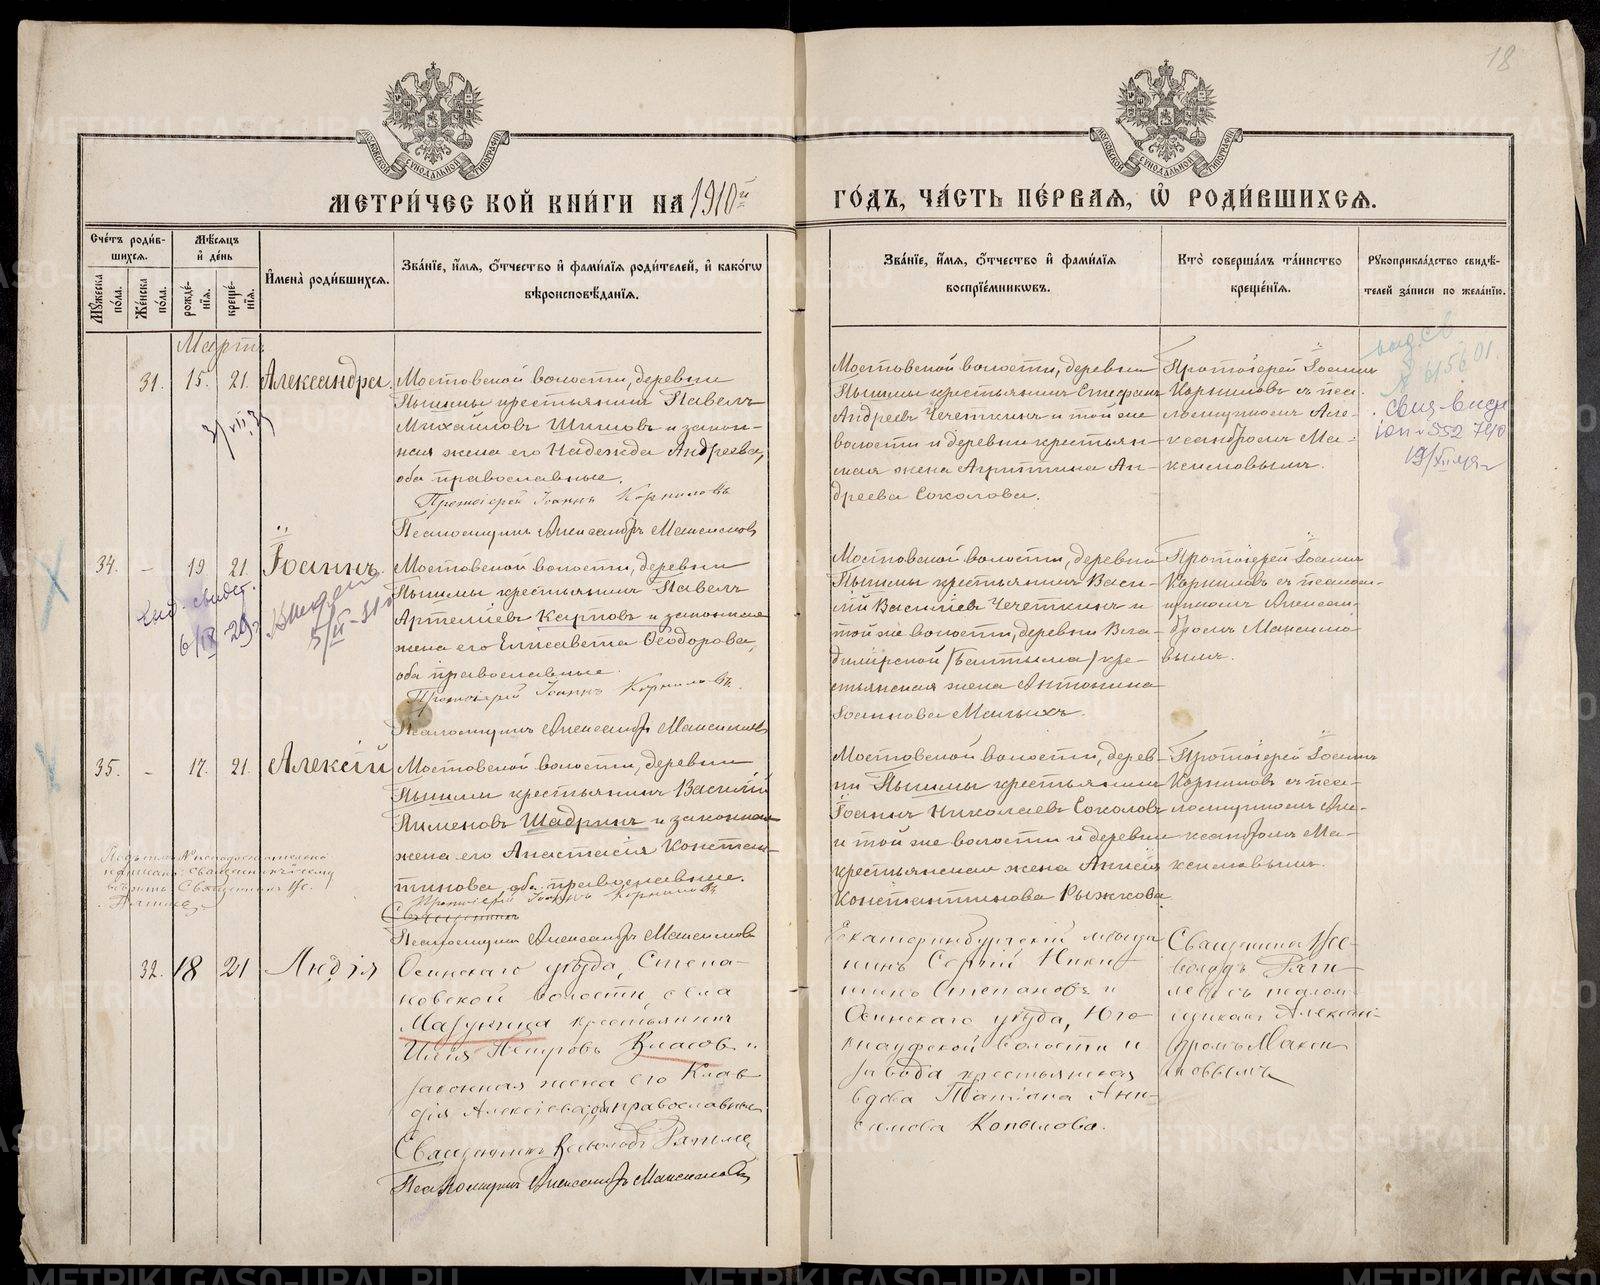 18
МЕТРИ́ЧЕСКОЙ КНИ́ГИ НА 1910й
ГО́ДЪ, ЧА́СТЬ ПЕ́РВАЯ, Ѡ҆ РОДИ́ВШИХСЯ.
Сче́тъ роди́в-
шихся.
Мꙋжеска по́ла.
Же́нска по́ла.
Мѣ́сяцъ
и҆ де́нь
рожде́-
нїя.
креще́-
нїя.
И҆мена̀ роди́вшихся.
Зва́нїе, и҆́мя, ѻ҆́тчество и҆ фами́лїя роди́телей, и҆ како́гѡ
вѣроисповѣ́данїя.
Зва́нїе, и҆́мя, ѻ҆́тчество и҆ фами́лїя
воспрїе́мникѡвъ.
Кто̀ соверша́лъ та́инство
креще́нїя.
Рꙋкоприкла́дство свидѣ́-
телей за́писи по жела́нїю.
Мартъ
31. 15. 21. Александра.
Мостовской волости, деревни
Пышмы крестьянинъ Павелъ
Михайловъ Шишовъ и закон-
ная жена его Надежда Андреева,
оба православные.
Протоіерей Іоаннъ Корниловъ
Псаломщикъ Александръ Максимовъ
Мостовской волости, деревни
Пышмы крестьянинъ Стефанъ
Андреевъ Чечеткинъ и той же
волости и деревни крестьян-
ская жена Агриппина Ан-
дреева Соколова.
Протоіерей Іоаннъ
Корниловъ съ пса-
ломщикомъ Але-
ксандромъ Ма-
ксимовымъ.
34. - 19 21. Іоаннъ.
Мостовской волости, деревни
Пышмы крестьянинъ Павелъ
Артемiевъ Карповъ и законная
жена его Елисавета Ѳеодорова,
оба православные.
Протоіерей Іоаннъ Корниловъ.
Псаломщикъ Александръ Максимовъ
Мостовской волости, деревни
Пышмы крестьянинъ Васи-
лій Василіевъ Чечеткинъ и
той же волости, деревни Вла-
димірской /Балтыма/ кре-
стьянская жена Антонина
Іоаннова Малыхъ.
Протоіерей Іоаннъ
Корниловъ съ псалом-
щикомъ Алексан-
дромъ Максимо-
вымъ.
35. - 17. 21. Алексій
Мостовской волости, деревни
Пышмы крестьянинъ Василій
Пименовъ Шадринъ и законная
жена его Анастасія Констан-
тинова, оба православные.
Протоіерей Іоаннъ Корниловъ
Священникъ
Псаломщикъ Александръ Максимовъ
Мостовской волости, дерев-
ни Пышмы крестьянинъ
Іоаннъ Николаевъ Соколовъ
и той же волости и деревни
крестьянская жена Анисія
Константинова Рыжкова.
Протоіерей Іоаннъ
Корниловъ съ пса-
ломщикомъ Але-
ксандромъ Ма-
ксимовымъ.
32. 18 21 Лидія
Осинскаго уѣзда, Степа-
новской волости, села
крестьянинъ
Илія Петровъ Власовъ и
законная жена его Клав-
дія Алексіева, оба православные
Священникъ Всеволодъ
Псаломщикъ Александръ Максимовъ
Екатеринбургскій мѣща-
нинъ Сергій Ники-
Степановъ и
Осинскаго уѣзда, Юго-
кнауфской волости и
завода крестьянская
вдова Татіана Ани-
симова Копылова.
Священникъ Все-
володъ
съ псалом-
щикомъ Алексан-
дромъ Макси-
мовымъ